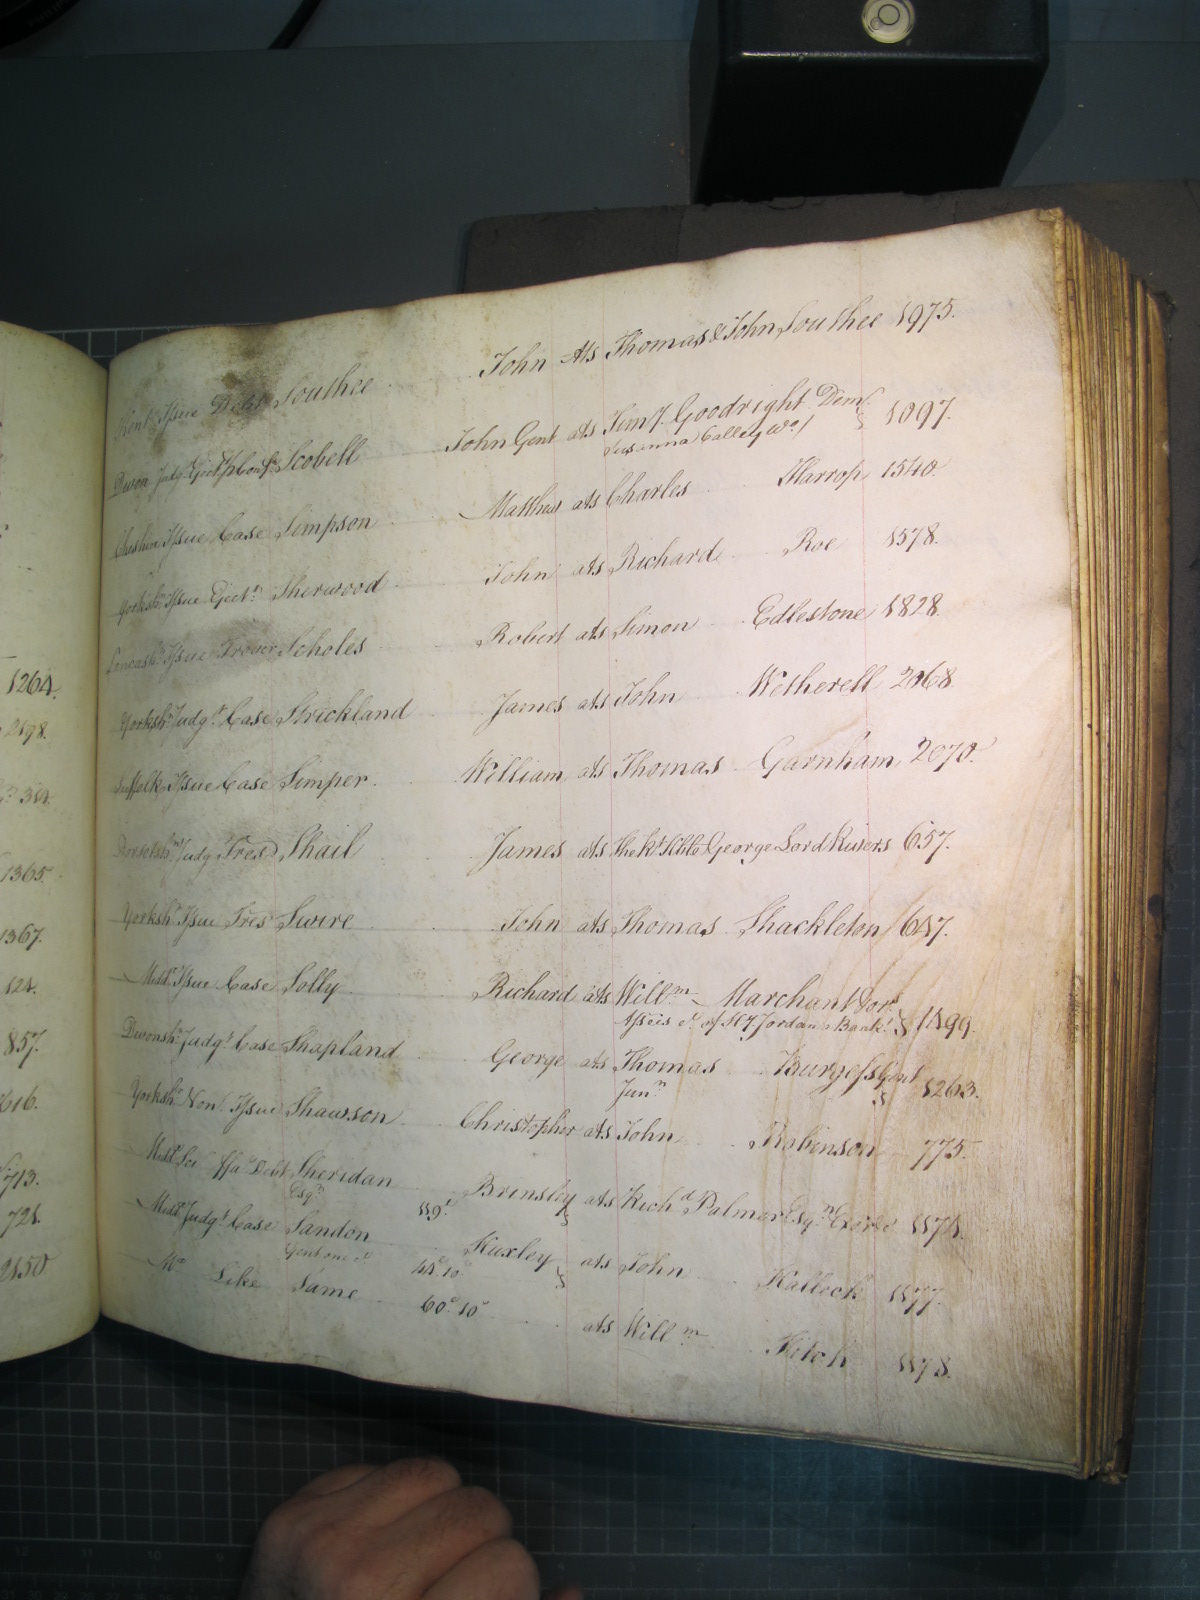 Kent Issue Debt Southee John Ats Thomas & John Southee 1975.
Devon Judgt. Scobell John Gent ats Jemy. Goodright Dem.
Susanna Calley Wo. 1097.
Cheshire Issue Case Simpson Matthew ats Charles Harrop 1540
Yorksh. Issue Eject. Sherwood John ats Richard Roe 1578.
Lancash. Issue Trover Scholes Robert ats Simon Edlestone 1828.
Yorksh. Judgt. Case Strickland James ats John Wetherell 2068
Suffolk Issue Case Simper William ats Thomas Garnham 2070.
Dorsetsh. Judg. Tres Shail James ats George Lord Rivers 657.
Yorksh. Issue Tres Swire John ats Thomas Shackleton 647.
Midd. Issue Case Solly Richard ats Willm. Marchant &or.
of Jordan a Bank. 1499.
Devonsh. Judgt. Case Shapland George ats Thomas Burgess Gent
Junr. 1263.
Yorksh. Non Issue Shawson Christopher ats John Robinson 775.
Midd. Sci ffa Debt Sheridan Brinsley ats Richd. Palmer Esqr. 1174.
Esqr. 119
Midd. Judgt. Case Sandon Huxley ats John Hallock 1177.
Gent one &c 45. 10
Mo Like Same 60. 10 ats Willm. Fitch 1178.
1264.
2198.
314
1365.
1367.
124.
857.
616.
713.
721.
2150